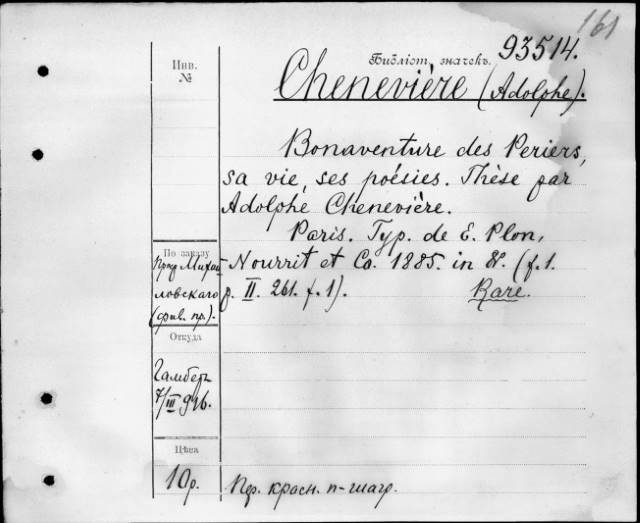 161
Инв. №
Библіот. значекъ. 93514.
Chenevière (Adolphe).
Bonaventure des Periers,
sa vie, ses poésies. Thèse par
Adolphe Chenevière.
Paris. Typ. de E. Plon,
Nourrit et Co. 1885. in 8º. (f. 1.
p. II. 261. f. 1). Rare.
По заказу
Михай-
ловскаго
Откуда
Гамберъ
7/III 96.
Цѣна
10р.
Пер. красн. п-шагр.